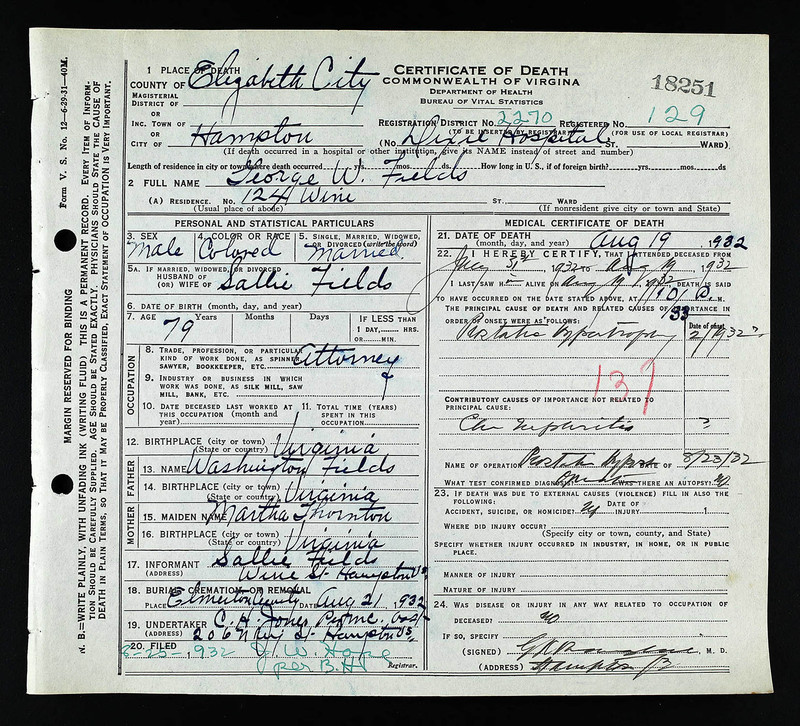 Form V. S. No. 12—6-29-31—40M.
MARGIN RESERVED FOR BINDING
N. B.—WRITE PLAINLY, WITH UNFADING INK (WRITING FLUID) THIS IS A PERMANENT RECORD. EVERY ITEM OF INFORMATION SHOULD BE CAREFULLY SUPPLIED. AGE SHOULD BE STATED EXACTLY. PHYSICIANS SHOULD STATE THE CAUSE OF DEATH IN PLAIN TERMS, SO THAT IT MAY BE PROPERLY CLASSIFIED. EXACT STATEMENT OF OCCUPATION IS VERY IMPORTANT.
1 PLACE OF DEATH
COUNTY OF Elizabeth City
MAGISTERIAL DISTRICT OF
OR
INC. TOWN OF
OR
CITY OF Hampton
CERTIFICATE OF DEATH
COMMONWEALTH OF VIRGINIA
DEPARTMENT OF HEALTH
BUREAU OF VITAL STATISTICS
18251
REGISTRATION DISTRICT NO. 2270 REGISTERED NO. 129
(TO BE INSERTED BY REGISTRAR) (FOR USE OF LOCAL REGISTRAR)
(No. Dixie Hospital ST. WARD)
(If death occurred in a hospital or other institution, give its NAME instead of street and number)
Length of residence in city or town where death occurred yrs. mos. ds How long in U. S., if of foreign birth? yrs. mos. ds
2 FULL NAME George W. Fields
(A) RESIDENCE. No. 124 Wine ST. WARD
(Usual place of abode) (If nonresident give city or town and State)
PERSONAL AND STATISTICAL PARTICULARS
3. SEX Male
4. COLOR OR RACE Colored
5. SINGLE, MARRIED, WIDOWED, OR DIVORCED (write the word) Married
5A. IF MARRIED, WIDOWED, OR DIVORCED
HUSBAND OF
(OR) WIFE OF Sallie Fields
6. DATE OF BIRTH (month, day, and year)
7. AGE 79 Years Months Days IF LESS THAN 1 DAY, HRS. OR MIN.
OCCUPATION
8. TRADE, PROFESSION, OR PARTICULAR KIND OF WORK DONE, AS SPINNER, SAWYER, BOOKKEEPER, ETC. Attorney
9. INDUSTRY OR BUSINESS IN WHICH WORK WAS DONE, AS SILK MILL, SAW MILL, BANK, ETC.
10. DATE DECEASED LAST WORKED AT THIS OCCUPATION (month and year)
11. TOTAL TIME (YEARS) SPENT IN THIS OCCUPATION
12. BIRTHPLACE (city or town) (State or country) Virginia
FATHER
13. NAME Washington Fields
14. BIRTHPLACE (city or town) (State or country) Virginia
MOTHER
15. MAIDEN NAME Martha Thornton
16. BIRTHPLACE (city or town) (State or country) Virginia
17. INFORMANT Sallie Fields
(ADDRESS) Wine St. Hampton Va
18. BURIAL, CREMATION, OR REMOVAL
PLACE DATE Aug 21, 1932
19. UNDERTAKER C. H. Jones
(ADDRESS) Hampton Va
20. FILED 8-25-, 1932 Y. W. Hope
per B. H. Registrar.
MEDICAL CERTIFICATE OF DEATH
21. DATE OF DEATH (month, day, and year) Aug 19, 1932
22. I HEREBY CERTIFY, THAT I ATTENDED DECEASED FROM
1932 TO Aug 19, 1932
I LAST SAW H ALIVE ON Aug 19, 1932 DEATH IS SAID
TO HAVE OCCURRED ON THE DATE STATED ABOVE, AT P. M.
THE PRINCIPAL CAUSE OF DEATH AND RELATED CAUSES OF IMPORTANCE IN ORDER OF ONSET WERE AS FOLLOWS: 33 Date of onset
137
CONTRIBUTORY CAUSES OF IMPORTANCE NOT RELATED TO PRINCIPAL CAUSE:
Chr Nephritis ?
NAME OF OPERATION DATE OF
WHAT TEST CONFIRMED DIAGNOSIS? WAS THERE AN AUTOPSY? no
23. IF DEATH WAS DUE TO EXTERNAL CAUSES (VIOLENCE) FILL IN ALSO THE FOLLOWING:
ACCIDENT, SUICIDE, OR HOMICIDE? DATE OF INJURY 1
WHERE DID INJURY OCCUR?
(Specify city or town, county, and State)
SPECIFY WHETHER INJURY OCCURRED IN INDUSTRY, IN HOME, OR IN PUBLIC PLACE.
MANNER OF INJURY
NATURE OF INJURY
24. WAS DISEASE OR INJURY IN ANY WAY RELATED TO OCCUPATION OF DECEASED? no
IF SO, SPECIFY
(SIGNED) M. D.
(ADDRESS) Hampton